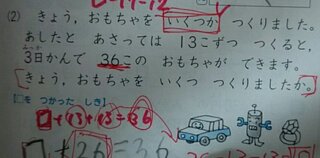 (2) きょう，おもちゃを いくつか つくりました。
あしたと あさっては 13こずつ つくると，
3日かんで 36この おもちゃが できます。
きょう，おもちゃを いくつ つくりましたか。
【□を つかった しき】
□+13+13=36
□+26=36